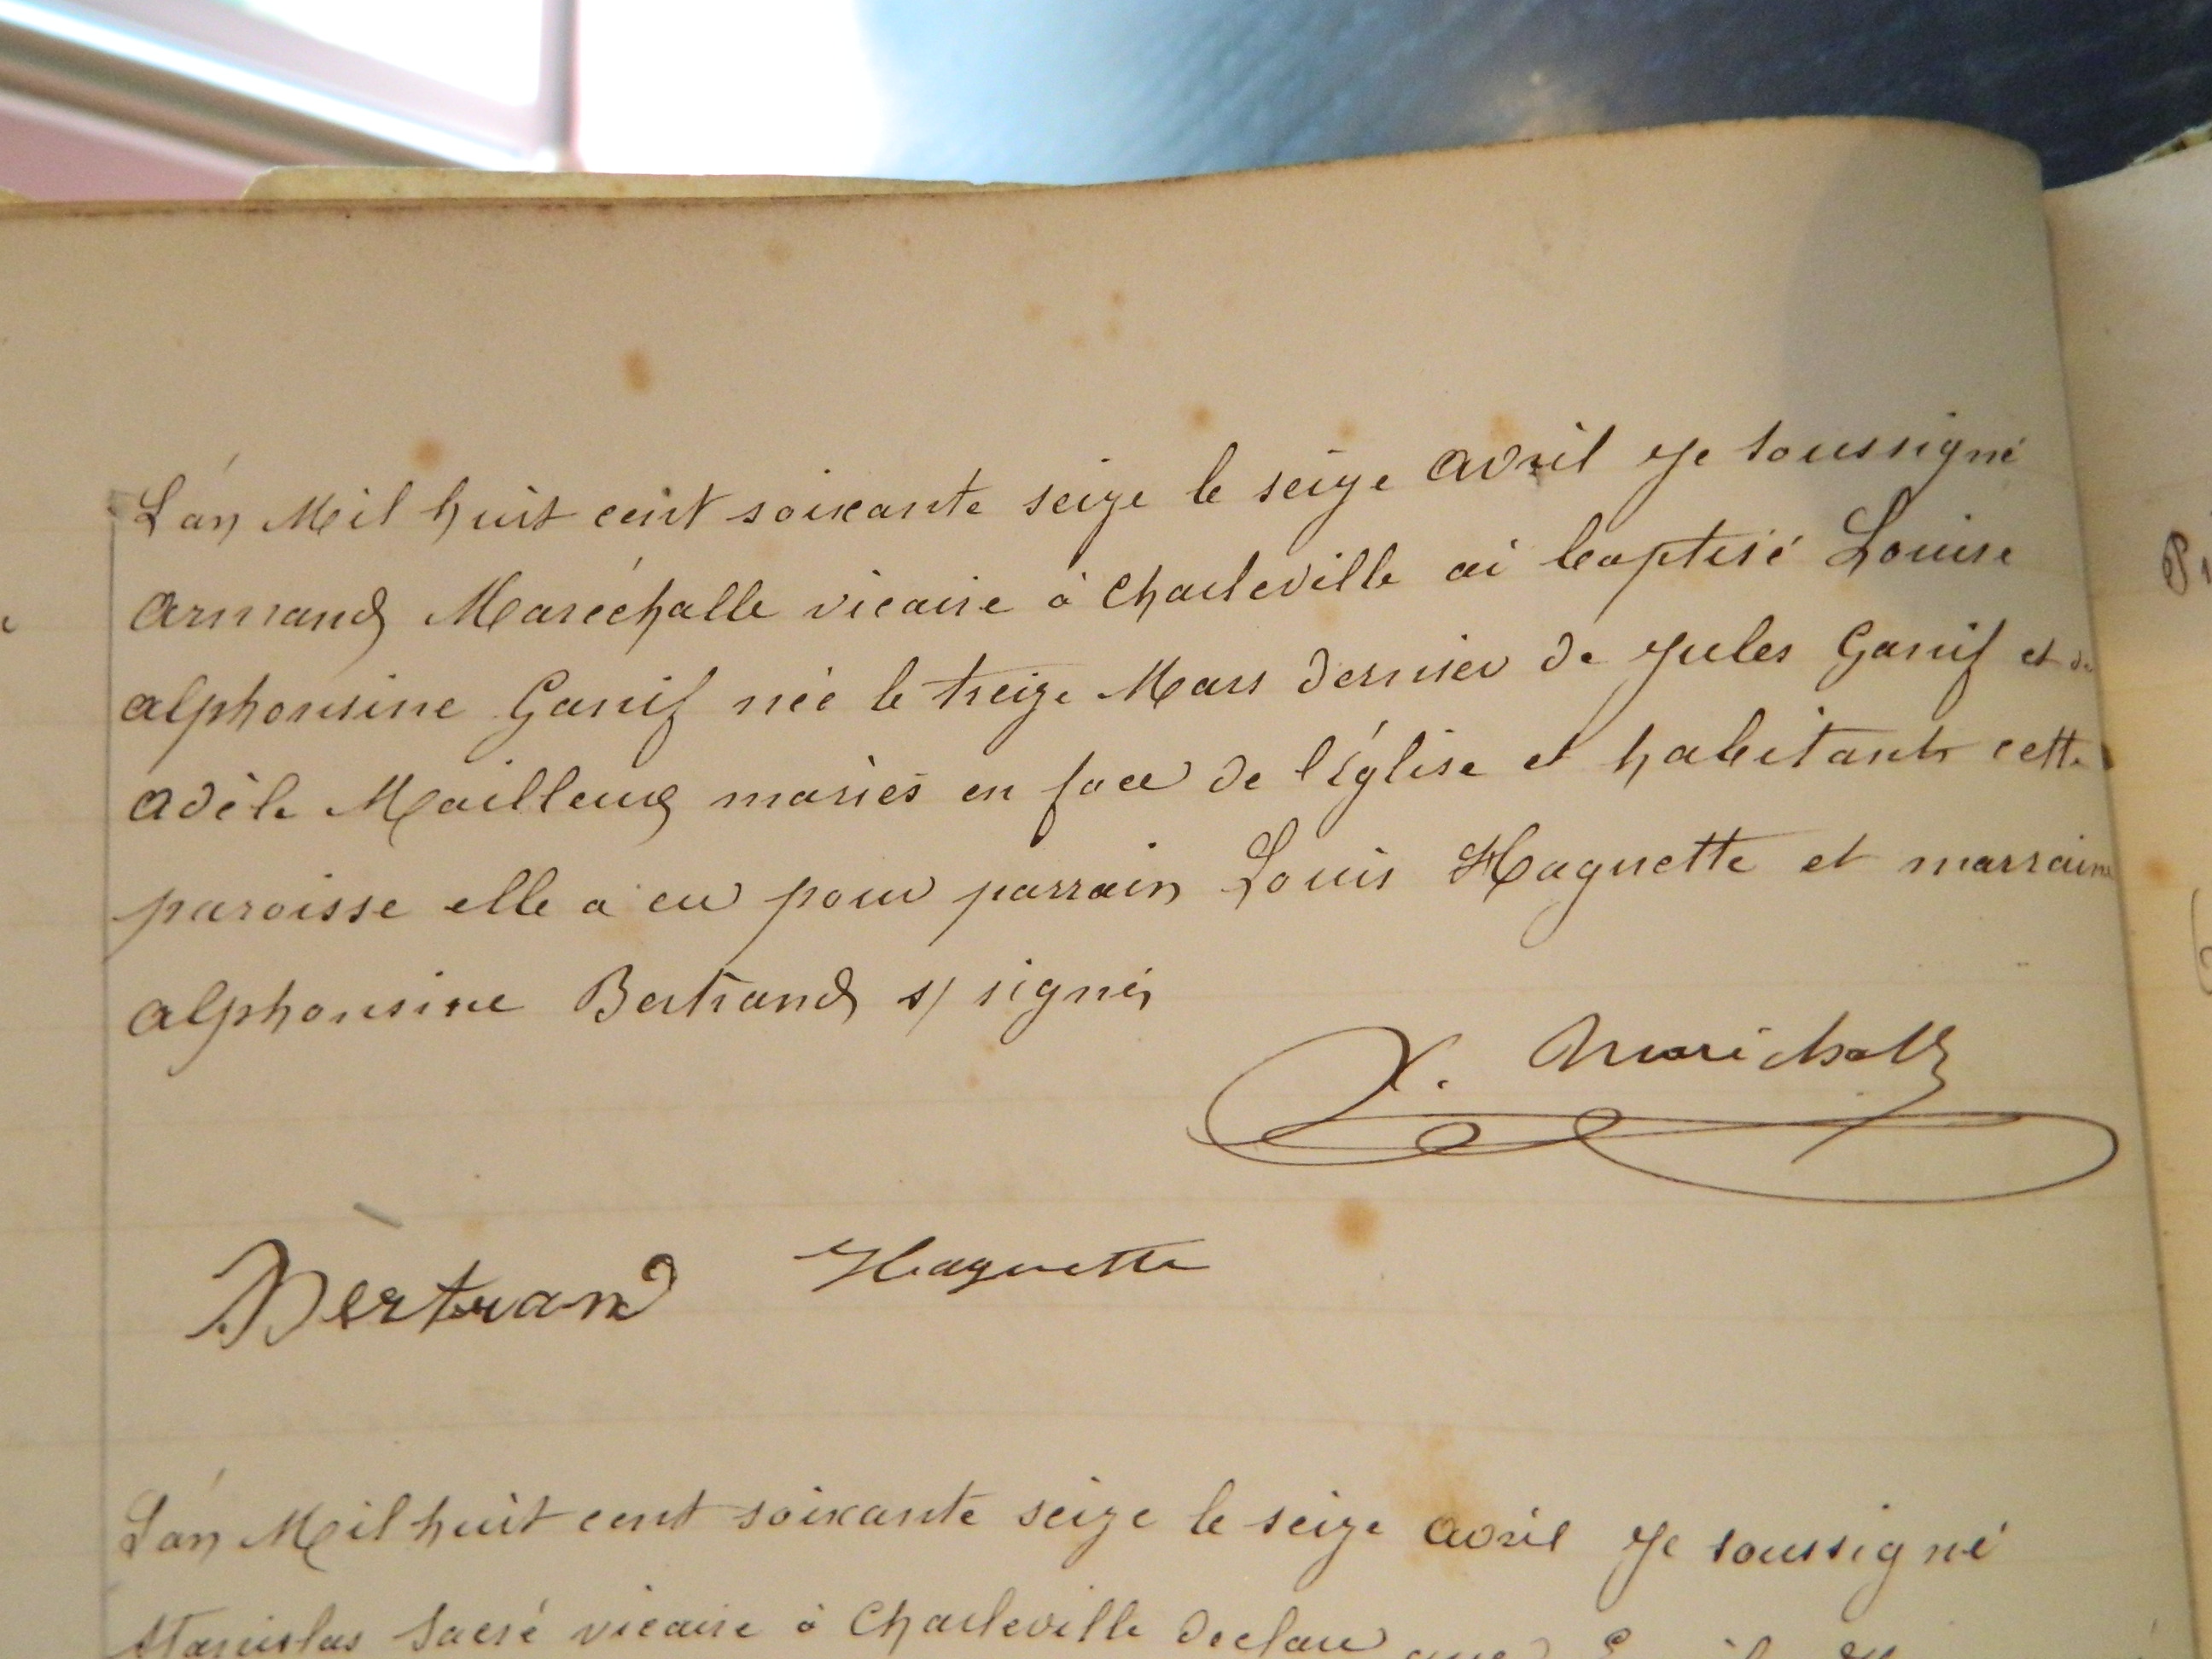 L'an Mil huit cent soixante seize le seize avril je soussigné
armand Maréchalle vicaire à Charleville ai baptisé Louise
alphonsine Ganif née le treize Mars dernier de jules Ganif et de
adèle Mailleux mariés en face de l'église et habitants cette
paroisse elle a eu pour parrain Louis Haguette et marraine
alphonsine Bertrand s/ signés
Bertrand Haguette
L'an Mil huit cent soixante seize le seize avril je soussigné
Stanislas Sacré vicaire à Charleville declare que